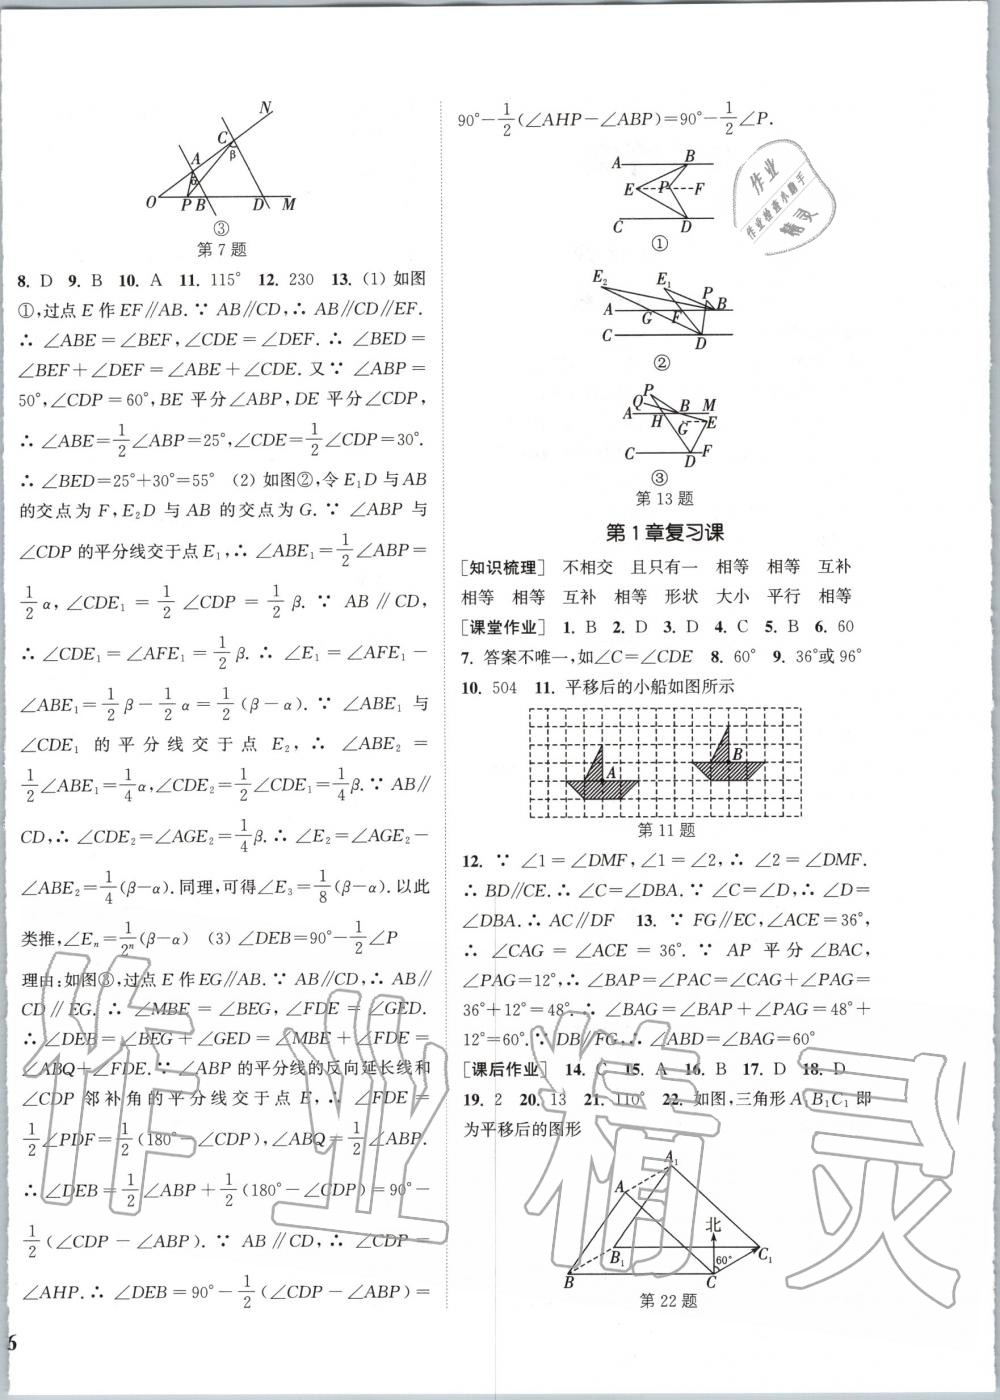 N
C
β
A
α
O P B D M
③
第 7 题
8. D 9. B 10. A 11. 115° 12. 230 13. (1) 如图
①,过点 E 作 EF∥AB.∵ AB∥CD,∴ AB∥CD∥EF.
∴ ∠ABE=∠BEF,∠CDE=∠DEF.∴ ∠BED=
∠BEF+∠DEF=∠ABE+∠CDE.又∵ ∠ABP=
50°,∠CDP=60°,BE 平分∠ABP,DE 平分∠CDP,
∴ ∠ABE=1/2∠ABP=25°,∠CDE=1/2∠CDP=30°.
∴ ∠BED=25°+30°=55° (2) 如图②,令 E₁D 与 AB
的交点为 F,E₂D 与 AB 的交点为 G.∵ ∠ABP 与
∠CDP 的平分线交于点 E₁,∴ ∠ABE₁=1/2∠ABP=
1/2α,∠CDE₁=1/2∠CDP=1/2β.∵ AB∥CD,
∴ ∠CDE₁=∠AFE₁=1/2β.∴ ∠E₁=∠AFE₁-
∠ABE₁=1/2β-1/2α=1/2(β-α).∵ ∠ABE₁ 与
∠CDE₁ 的平分线交于点 E₂,∴ ∠ABE₂=
1/2∠ABE₁=1/4α,∠CDE₂=1/2∠CDE₁=1/4β.∵ AB∥
CD,∴ ∠CDE₂=∠AGE₂=1/4β.∴ ∠E₂=∠AGE₂-
∠ABE₂=1/4(β-α).同理,可得∠E₃=1/8(β-α).以此
类推,∠Eₙ=1/2ⁿ(β-α) (3) ∠DEB=90°-1/2∠P
理由:如图③,过点 E 作 EG∥AB.∵ AB∥CD,∴ AB∥
CD∥EG.∴ ∠MBE=∠BEG,∠FDE=∠GED.
∴ ∠DEB=∠BEG+∠GED=∠MBE+∠FDE=
∠ABQ+∠FDE.∵ ∠ABP 的平分线的反向延长线和
∠CDP 邻补角的平分线交于点 E,∴ ∠FDE=
1/2∠PDF=1/2(180°-∠CDP),∠ABQ=1/2∠ABP.
∴ ∠DEB=1/2∠ABP+1/2(180°-∠CDP)=90°-
1/2(∠CDP-∠ABP).∵ AB∥CD,∴ ∠CDP=
∠AHP.∴ ∠DEB=90°-1/2(∠CDP-∠ABP)=
6
90°-1/2(∠AHP-∠ABP)=90°-1/2∠P.
A B
E P F
C D
①
E₂ E₁ P
A G F B
C D
②
P
Q
A H B M
G E
C D F
③
第 13 题
第 1 章复习课
[知识梳理] 不相交 且只有一 相等 相等 互补
相等 相等 互补 相等 形状 大小 平行 相等
[课堂作业] 1. B 2. D 3. D 4. C 5. B 6. 60
7. 答案不唯一,如∠C=∠CDE 8. 60° 9. 36°或 96°
10. 504 11. 平移后的小船如图所示
A B
第 11 题
12. ∵ ∠1=∠DMF,∠1=∠2,∴ ∠2=∠DMF.
∴ BD∥CE.∴ ∠C=∠DBA.∵ ∠C=∠D,∴ ∠D=
∠DBA.∴ AC∥DF 13. ∵ FG∥EC,∠ACE=36°,
∴ ∠CAG=∠ACE=36°.∵ AP 平分∠BAC,
∠PAG=12°,∴ ∠BAP=∠PAC=∠CAG+∠PAG=
36°+12°=48°.∴ ∠BAG=∠BAP+∠PAG=48°+
12°=60°.∵ DB∥FG,∴ ∠ABD=∠BAG=60°
[课后作业] 14. C 15. A 16. B 17. D 18. D
19. 2 20. 13 21. 110° 22. 如图,三角形 A₁B₁C₁ 即
为平移后的图形
A₁
A
北
B₁ 60° C₁
B C
第 22 题
作业
作业检查小助手
精灵
作业精灵